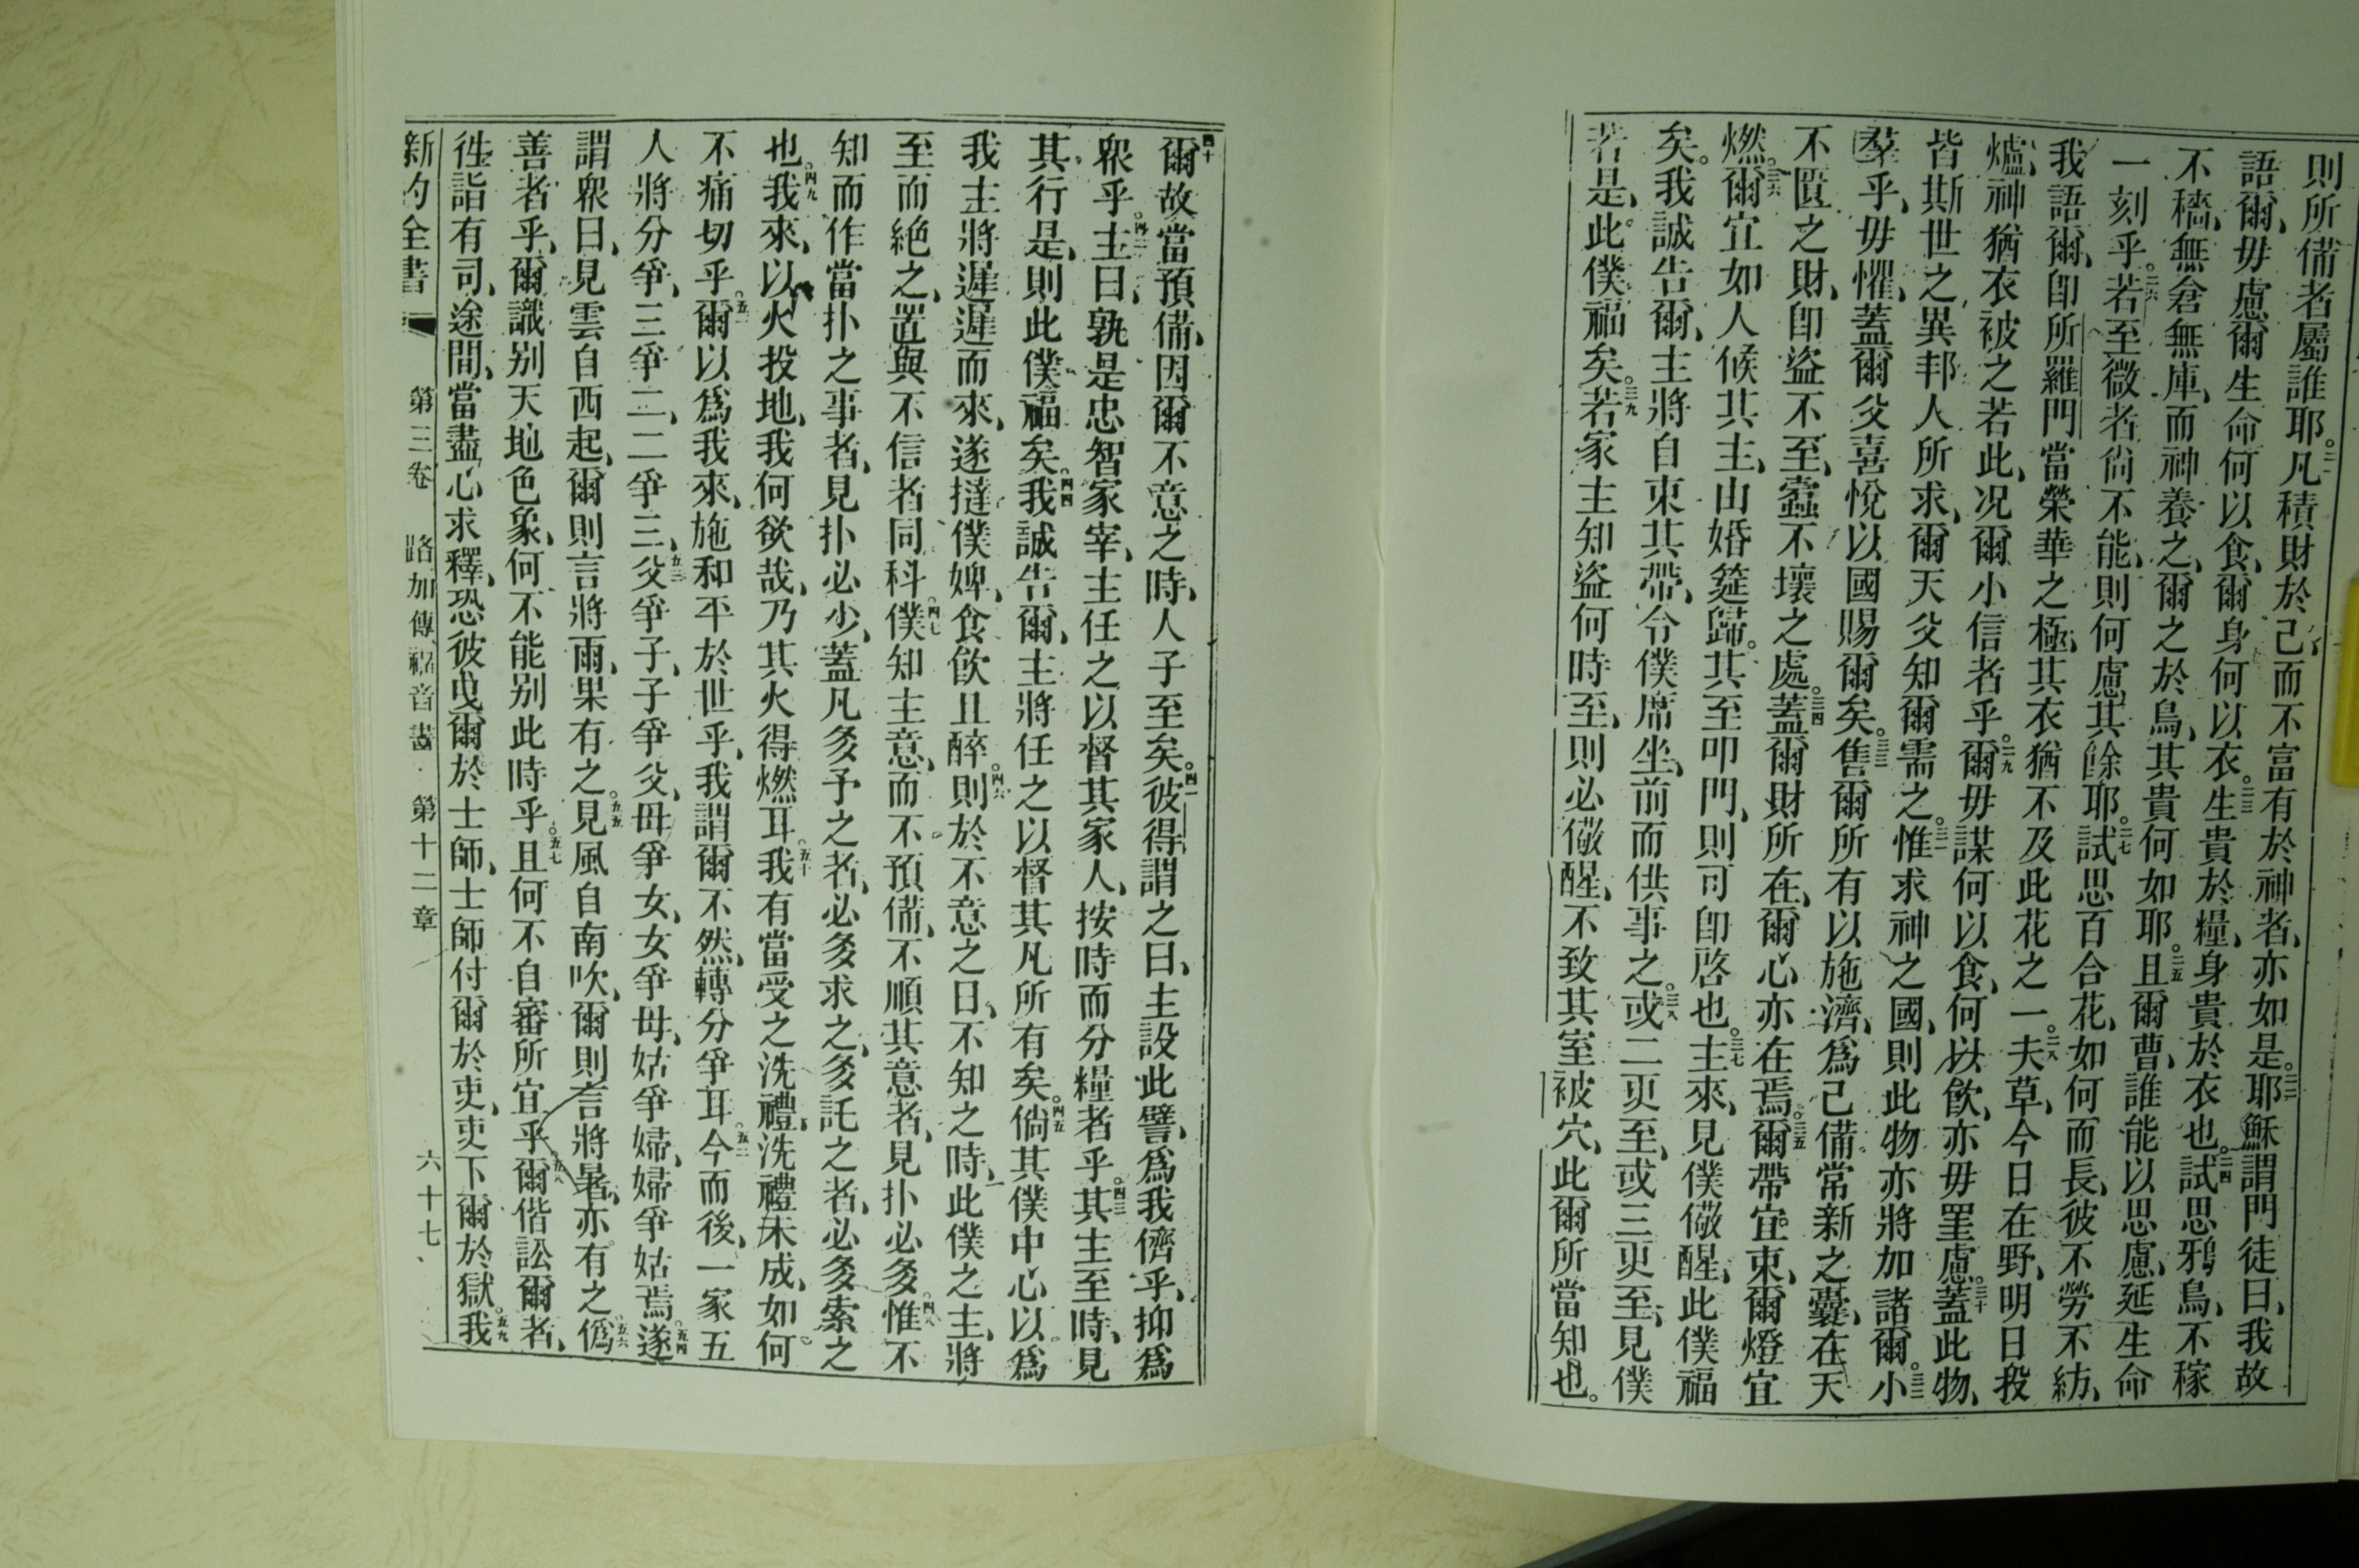 則所備者屬誰耶。二一凡積財於己、而不富有於神者、亦如是。二二耶穌謂門徒曰、我故
語爾、毋慮爾生命何以食、爾身何以衣。二三生貴於糧、身貴於衣也。二四試思鴉鳥、不稼
不穡、無倉無庫、而神養之、爾之於鳥、其貴何如耶。二五且爾曹、誰能以思慮、延生命
一刻乎。二六若至微者尙不能、則何慮其餘耶。二七試思百合花、如何而長、彼不勞不紡、
我語爾、卽所羅門當榮華之極、其衣猶不及此花之一。二八夫草、今日在野、明日投
爐、神猶衣被之若此、况爾小信者乎。二九爾毋謀何以食、何以飮、亦毋罣慮。三十蓋此物、
皆斯世之異邦人所求、爾天父知爾需之。三一惟求神之國、則此物亦將加諸爾。三二小
羣乎、毋懼、蓋爾父喜悅以國賜爾矣。三三售爾所有以施濟、爲己備常新之囊、在天
不匱之財、卽盜不至、蠹不壞之處。三四蓋爾財所在、爾心亦在焉。三五爾帶宜束、爾燈宜
燃。三六爾宜如人候其主、由婚筵歸。其至叩門、則可卽啓也。三七主來、見僕儆醒、此僕福
矣。我誠告爾、主將自束其帶、令僕席坐、前而供事之。三八或二更至、或三更至、見僕
若是、此僕福矣。三九若家主知盜何時至、則必儆醒、不致其室被穴、此爾所當知也。
四十爾故當預備、因爾不意之時、人子至矣。四一彼得謂之曰、主設此譬、爲我儕乎、抑爲
衆乎。四二主曰、孰是忠智家宰、主任之以督其家人、按時而分糧者乎。四三其主至時、見
其行是、則此僕福矣。四四我誠告爾、主將任之以督其凡所有矣。四五倘其僕中心以爲
我主將遲遲而來、遂撻僕婢、食飮且醉。四六則於不意之日、不知之時、此僕之主、將
至而絕之、置與不信者同科。四七僕知主意、而不預備、不順其意者、見扑必多。四八惟不
知而作當扑之事者、見扑必少、蓋凡多予之者、必多求之、多託之者、必多索之
也。四九我來、以火投地、我何欲哉、乃其火得燃耳。五十我有當受之洗禮、洗禮未成、如何
不痛切乎。五一爾以爲我來、施和平於世乎、我謂爾不然、轉分爭耳。五二今而後、一家五
人將分爭、三爭二、二爭三、五三父爭子、子爭父、母爭女、女爭母、姑爭婦、婦爭姑焉。五四遂
謂衆曰、見雲自西起、爾則言將雨、果有之。五五見風自南吹、爾則言將暑、亦有之。五六僞
善者乎、爾識别天地色象、何不能别此時乎。五七且何不自審所宜乎。五八爾偕訟爾者、
徃詣有司、途間、當盡心求釋、恐彼曵爾於士師、士師付爾於吏、吏下爾於獄。五九我
新約全書 第三卷 路加傳福音書 第十二章 六十七